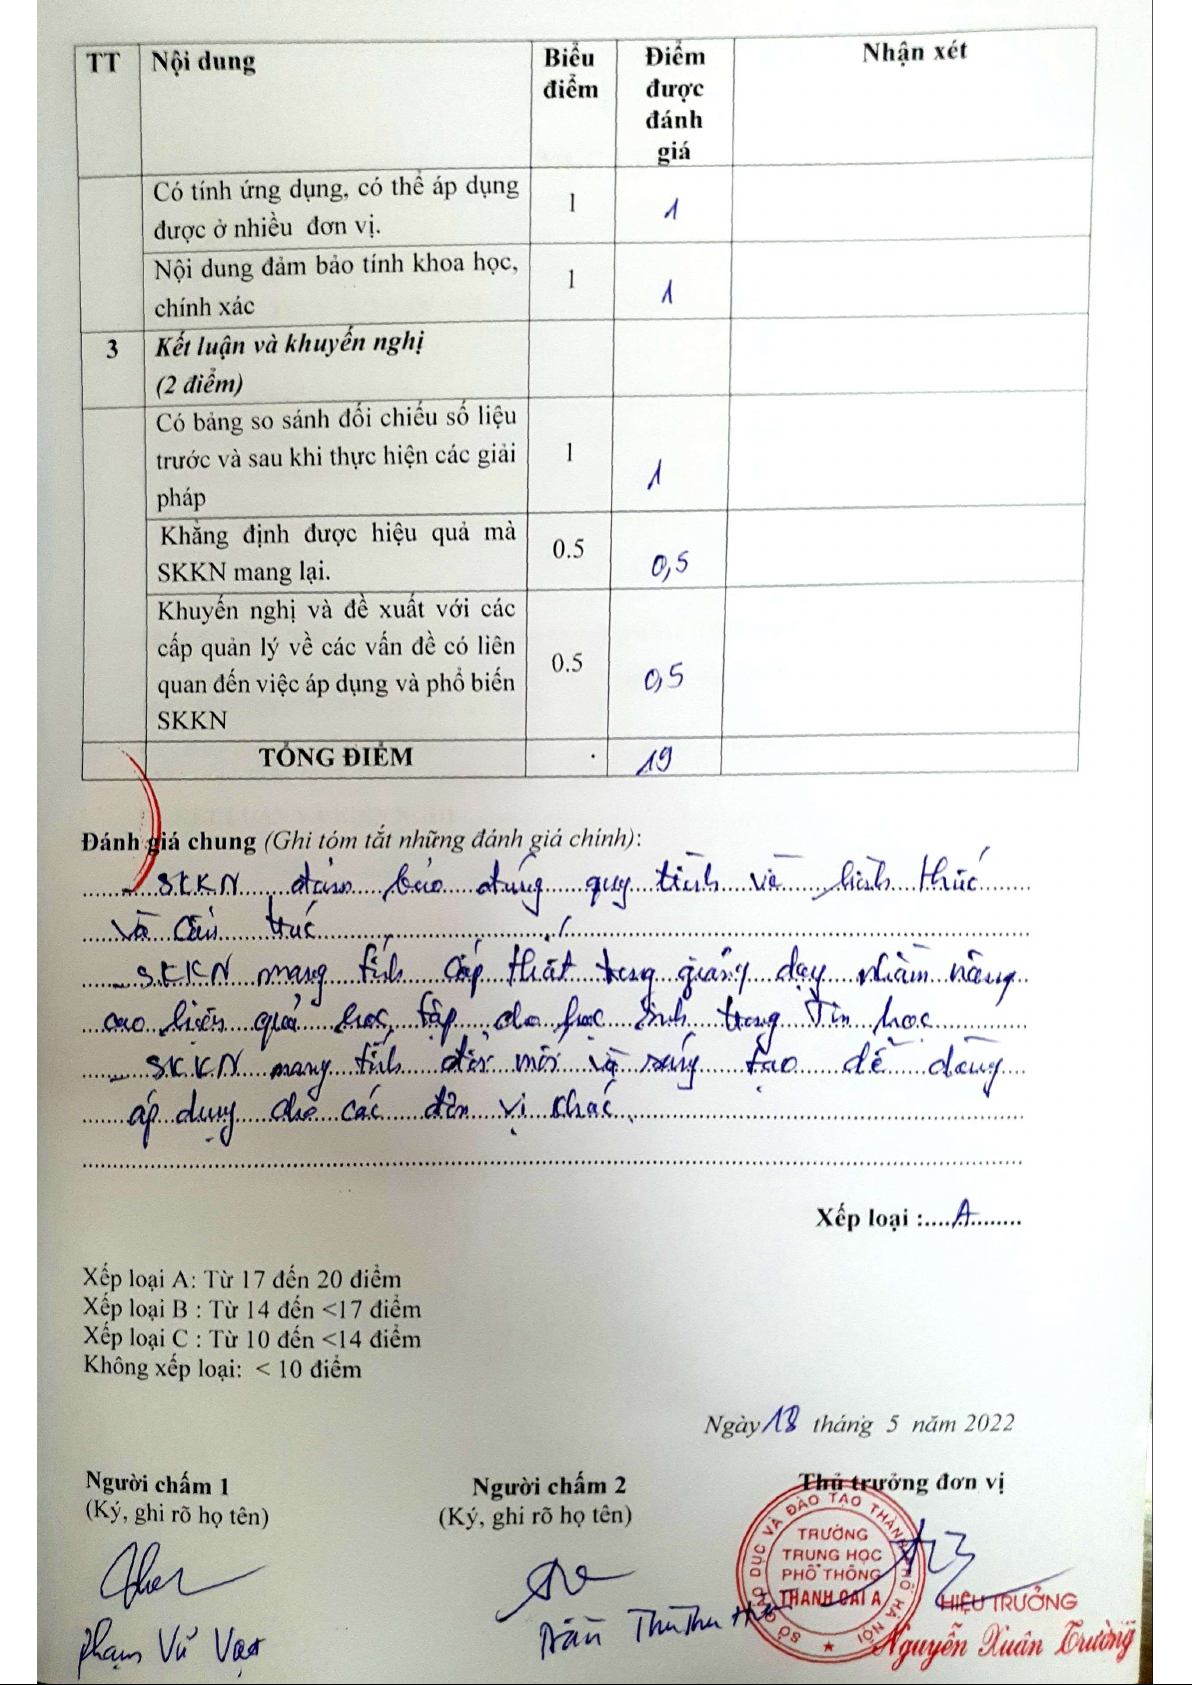 TT Nội dung Biểu điểm Điểm được đánh giá Nhận xét
Có tính ứng dụng, có thể áp dụng 1 1
được ở nhiều đơn vị.
Nội dung đảm bảo tính khoa học, 1 1
chính xác
3 Kết luận và khuyến nghị
(2 điểm)
Có bảng so sánh đối chiếu số liệu
trước và sau khi thực hiện các giải 1 1
pháp
Khẳng định được hiệu quả mà 0.5 0,5
SKKN mang lại.
Khuyến nghị và đề xuất với các
cấp quản lý về các vấn đề có liên 0.5 0,5
quan đến việc áp dụng và phổ biến
SKKN
TỔNG ĐIỂM 19
Đánh giá chung (Ghi tóm tắt những đánh giá chính):
- SKKN đảm bảo đúng quy trình về hình thức
và cấu trúc
- SKKN mang tính cấp thiết trong giảng dạy nhằm nâng
cao hiệu quả học tập cho học sinh trong Tin học
- SKKN mang tính đổi mới và sáng tạo dễ dàng
áp dụng cho các đơn vị khác.
Xếp loại :....A........
Xếp loại A: Từ 17 đến 20 điểm
Xếp loại B : Từ 14 đến <17 điểm
Xếp loại C : Từ 10 đến <14 điểm
Không xếp loại: < 10 điểm
Ngày 18 tháng 5 năm 2022
Người chấm 1 Người chấm 2 Thủ trưởng đơn vị
(Ký, ghi rõ họ tên) (Ký, ghi rõ họ tên)
SỞ GIÁO DỤC VÀ ĐÀO TẠO THÀNH PHỐ HÀ NỘI
TRƯỜNG
TRUNG HỌC
PHỔ THÔNG
THANH OAI A
HIỆU TRƯỞNG
Phạm Vũ Trần Thị Thu Nguyễn Xuân Trường